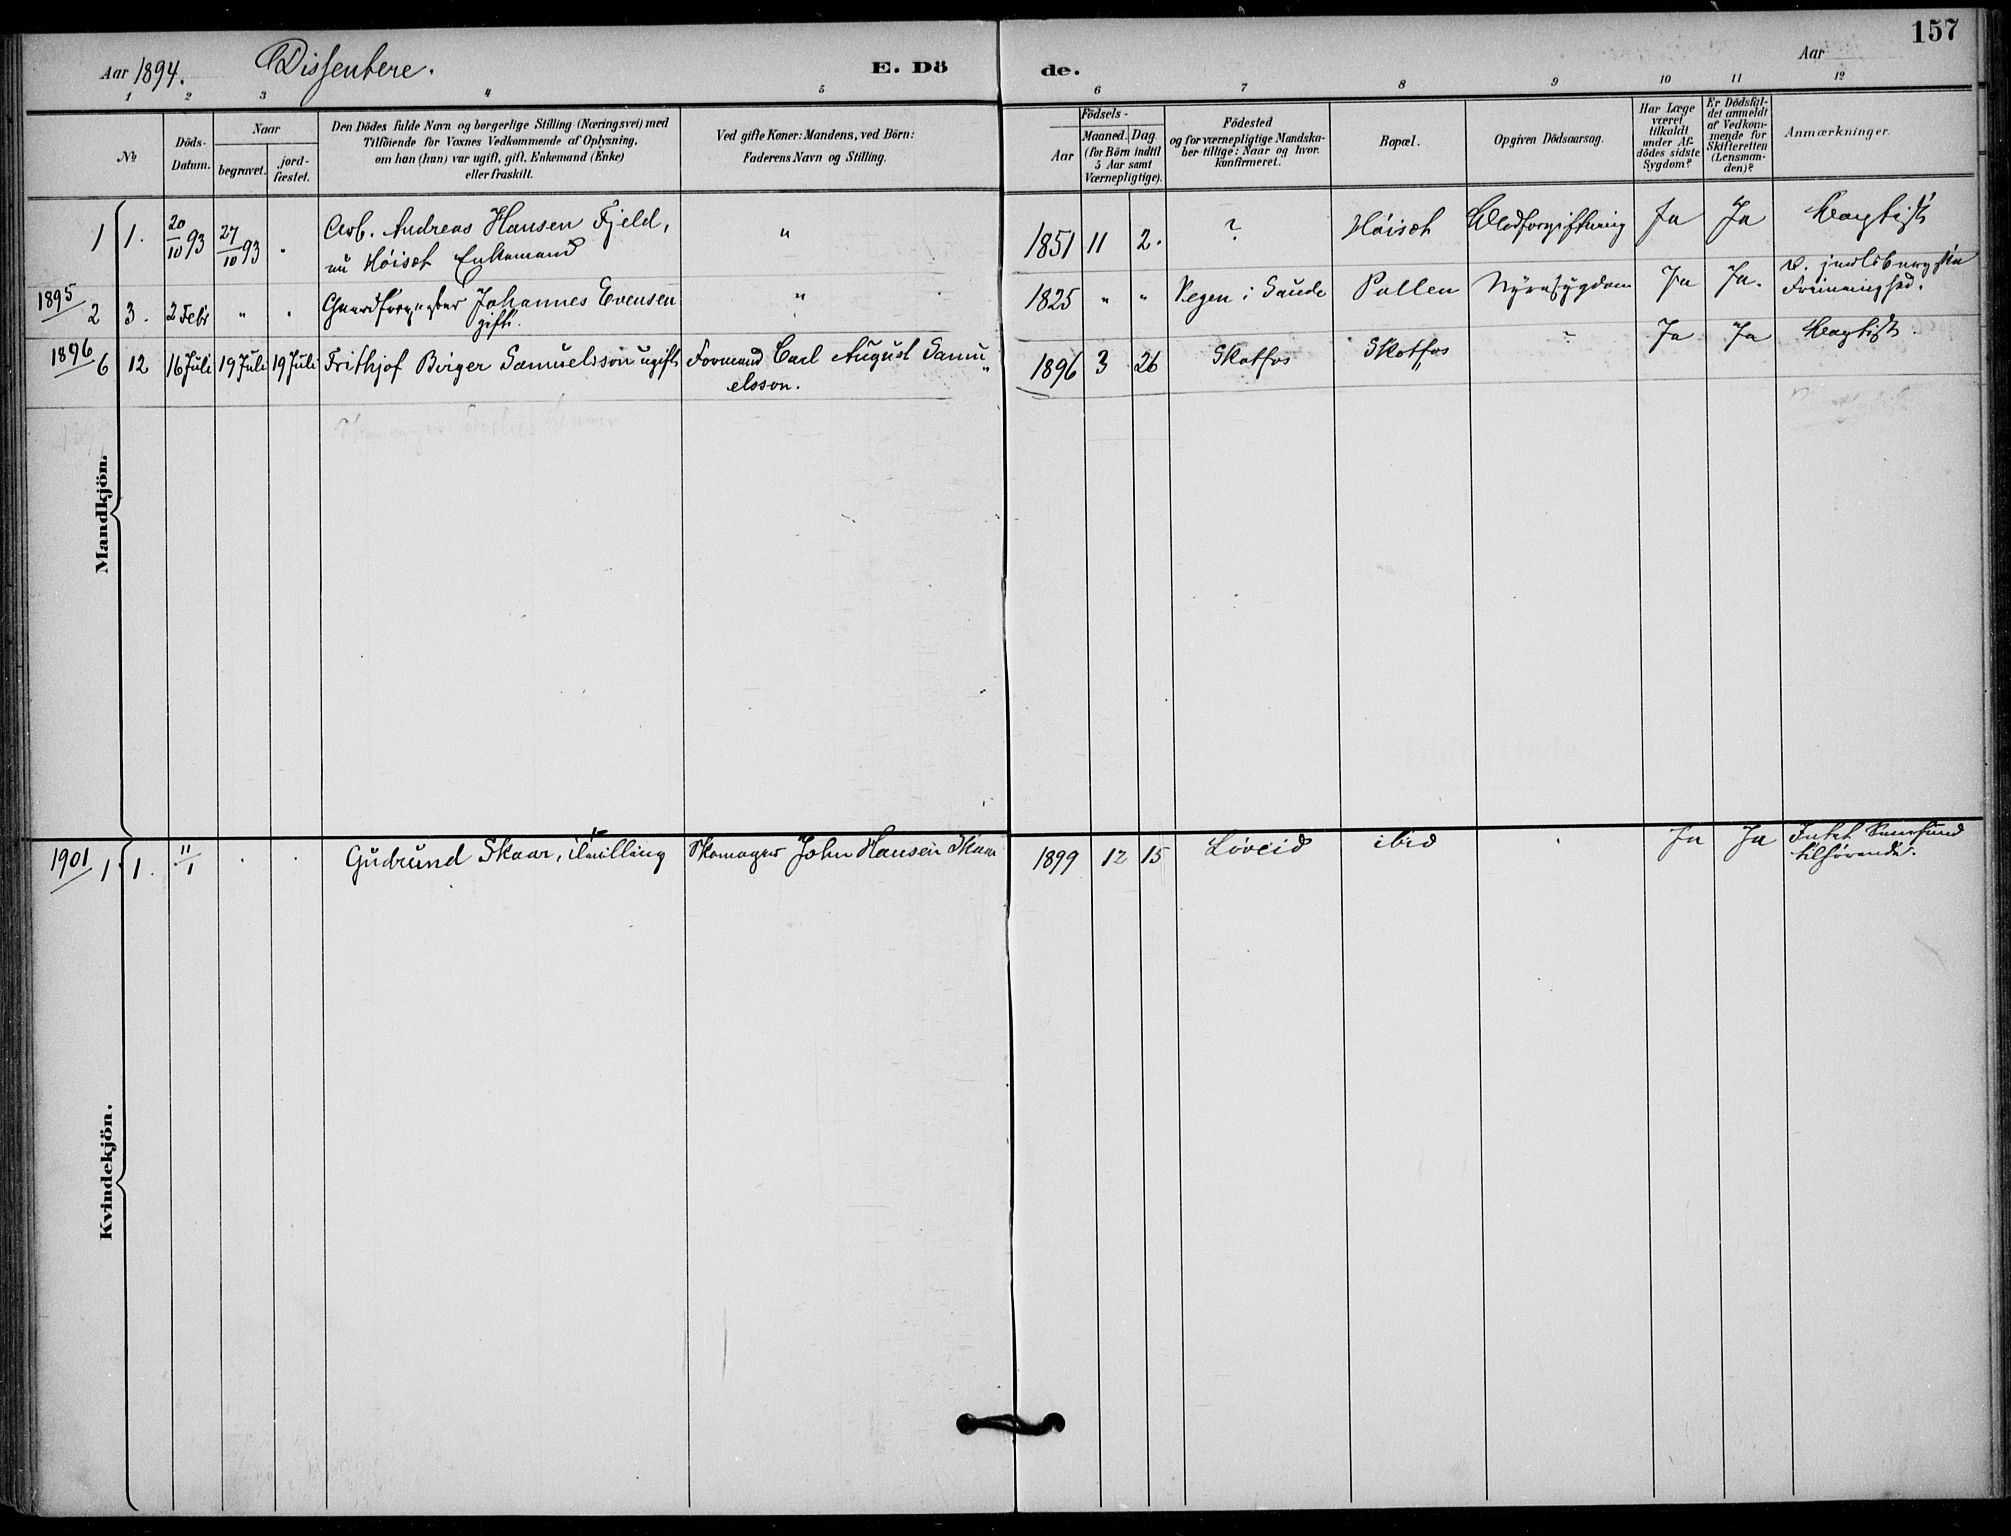 157
Aar 1894. Dissentere. E. Döde. Aar
1 2 3 4 5 6 7 8 9 10 11 12
№
Döds-
Datum.
Naar
begravet.
jord-
fæstet.
Den Dödes fulde Navn og borgerlige Stilling (Næringsvei) med
Tilföiende for Voxnes Vedkommende af Oplysning,
om han (hun) var ugift, gift, Enkemand (Enke)
eller fraskilt.
Ved gifte Koner: Mandens, ved Börn:
Faderens Navn og Stilling.
Födsels-
Aar
Maaned. Dag.
(for Börn indtil
5 Aar samt
Værnepligtige).
Födested
og for værnepligtige Mandska-
ber tillige: Naar og hvor
konfirmeret.
Bopæl.
Opgiven Dödsaarsag.
Har Læge
været
tilkaldt
under Af-
dödes sidste
Sygdom?
Er Dödsfal-
det anmeldt
af Vedkom-
mende for
Skifteretten
(Lensman-
den)?
Anmærkninger.
Mandkjön.
1 1. 20/10 93 27/10 93 " Arb. Andreas Hansen Fjeld, " 1851 11 2. ? Höisæt Blodforgiftning Ja Ja Baptist
nu Höisæt Enkemand
1895 2 3. 2 Febr " " Johannes Evensen " 1825 " " i Saude Pollen Nyresygdom Ja Ja.
gift. Frimenighed.
1896 6 12 16 Juli 19 Juli 19 Juli Frithjof Birger Samuelsson ugift Formand Carl August Samu 1896 3 26 Skotfos Skotfos " Ja Ja Baptist.
elsson.
Kvindekjön.
1901 1. 1. 11/1 " " Gudrund Skaar, tvilling Skomager John Hansen Skaar 1899 12 15 Löveid ibid " Ja Ja Intet Samfund
tilhörende.